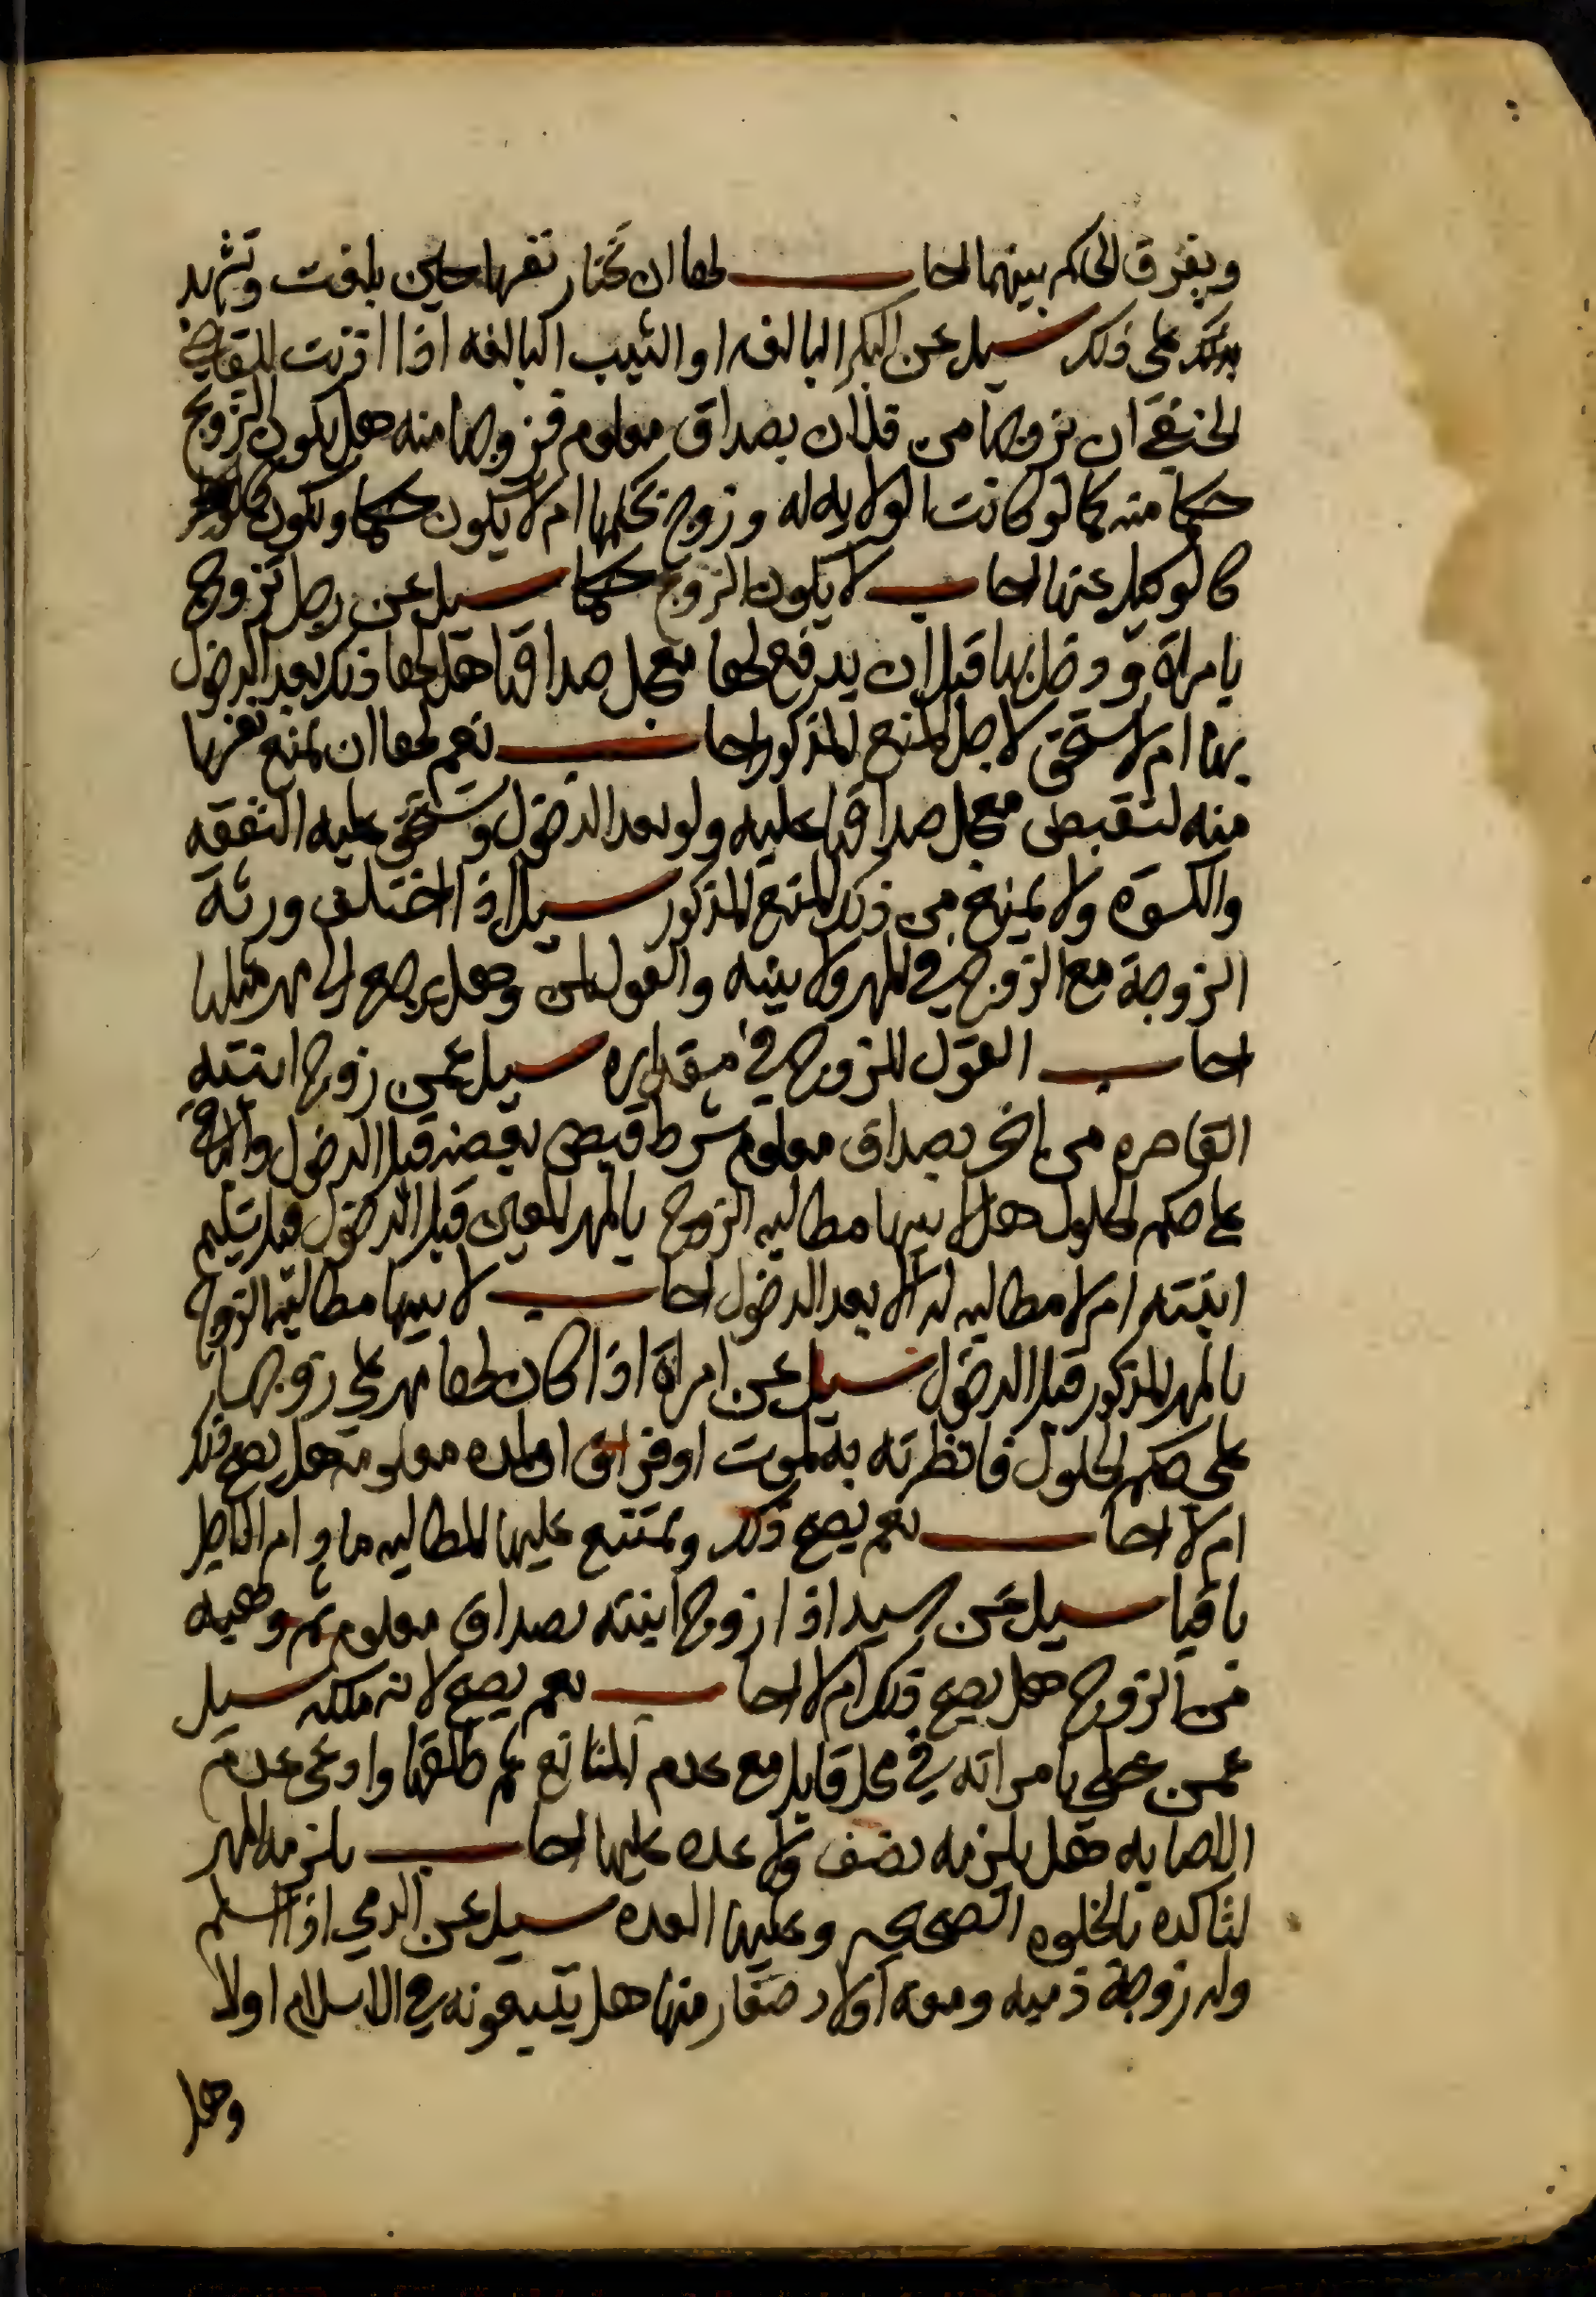 ويفرق الحاكم بينهما اجاب لها ان تختار نفسها حين بلغت وتشهد
على ذلك سيل عن البكر البالغه او الثيب البالغه اذا اذنت للقاضي
الحنفي ان يزوجها من فلان بصداق معلوم فزوجها منه هل يكون التزويج
حكما منه كما لو كانت الولايه له وزوج بحكمها ام لا يكون حكما ويكون
كالوكيل عنها اجاب لا يكون التزويج حكما سيل عن رجل تزوج
بامراة ودخل بها قبل ان يدفع لها معجل صداقها هل لها ذلك بعد الدخول
بها ام لا تستحق لاجل المنع المذكور اجاب نعم لها ان تمنع نفسها
منه لتقبض معجل صداقها عليه ولو بعد الدخول وتستحق عليه النفقه
والكسوة ولا يمنع من ذلك المنع المذكور سيل اذا اختلف ورثة
الزوجة مع الزوج في المهر ولا بينه والقول لمن وهل يرجع الى مهر مثلها
اجاب القول للزوج في مقداره سيل عمن زوج ابنته
القاصره من اخر بصداق معلوم شرط قبض بعضه قبل الدخول والباقي
على حكم الحلول هل لابيها مطالبه الزوج بالمهر المعين قبل الدخول قبل تسليم
ابنته ام لا مطالبه له الا بعد الدخول اجاب لابيها مطالبة الزوج
بالمهر المذكور قبل الدخول سيل عن امراة اذا كان لها مهر على زوجها
على حكم الحلول فانظرته به لموت او فراق او لمده معلومة هل يصح ذلك
ام لا اجاب نعم يصح ذلك وتمتنع عليها المطالبه ما دام التاجيل
باقيا سيل عن سيد اذا زوج ابنته بصداق معلوم ثم وهبه
من الزوج هل يصح ذلك ام لا اجاب نعم يصح لانه ملكه سيل
عمن خلى بامراته في محل قابل مع عدم المنانع ثم طلقها وادعى عدم
الاصابه هل يلزمه نصف ولا عده عليها اجاب يلزمه المهر
لتاكده بالخلوه الصحيحه وعليها العده سيل عن الذمي اذا اسلم
وله زوجة ذميه ومعه اولاد صغار منها هل يتبعونه في الاسلام اولا
وهل